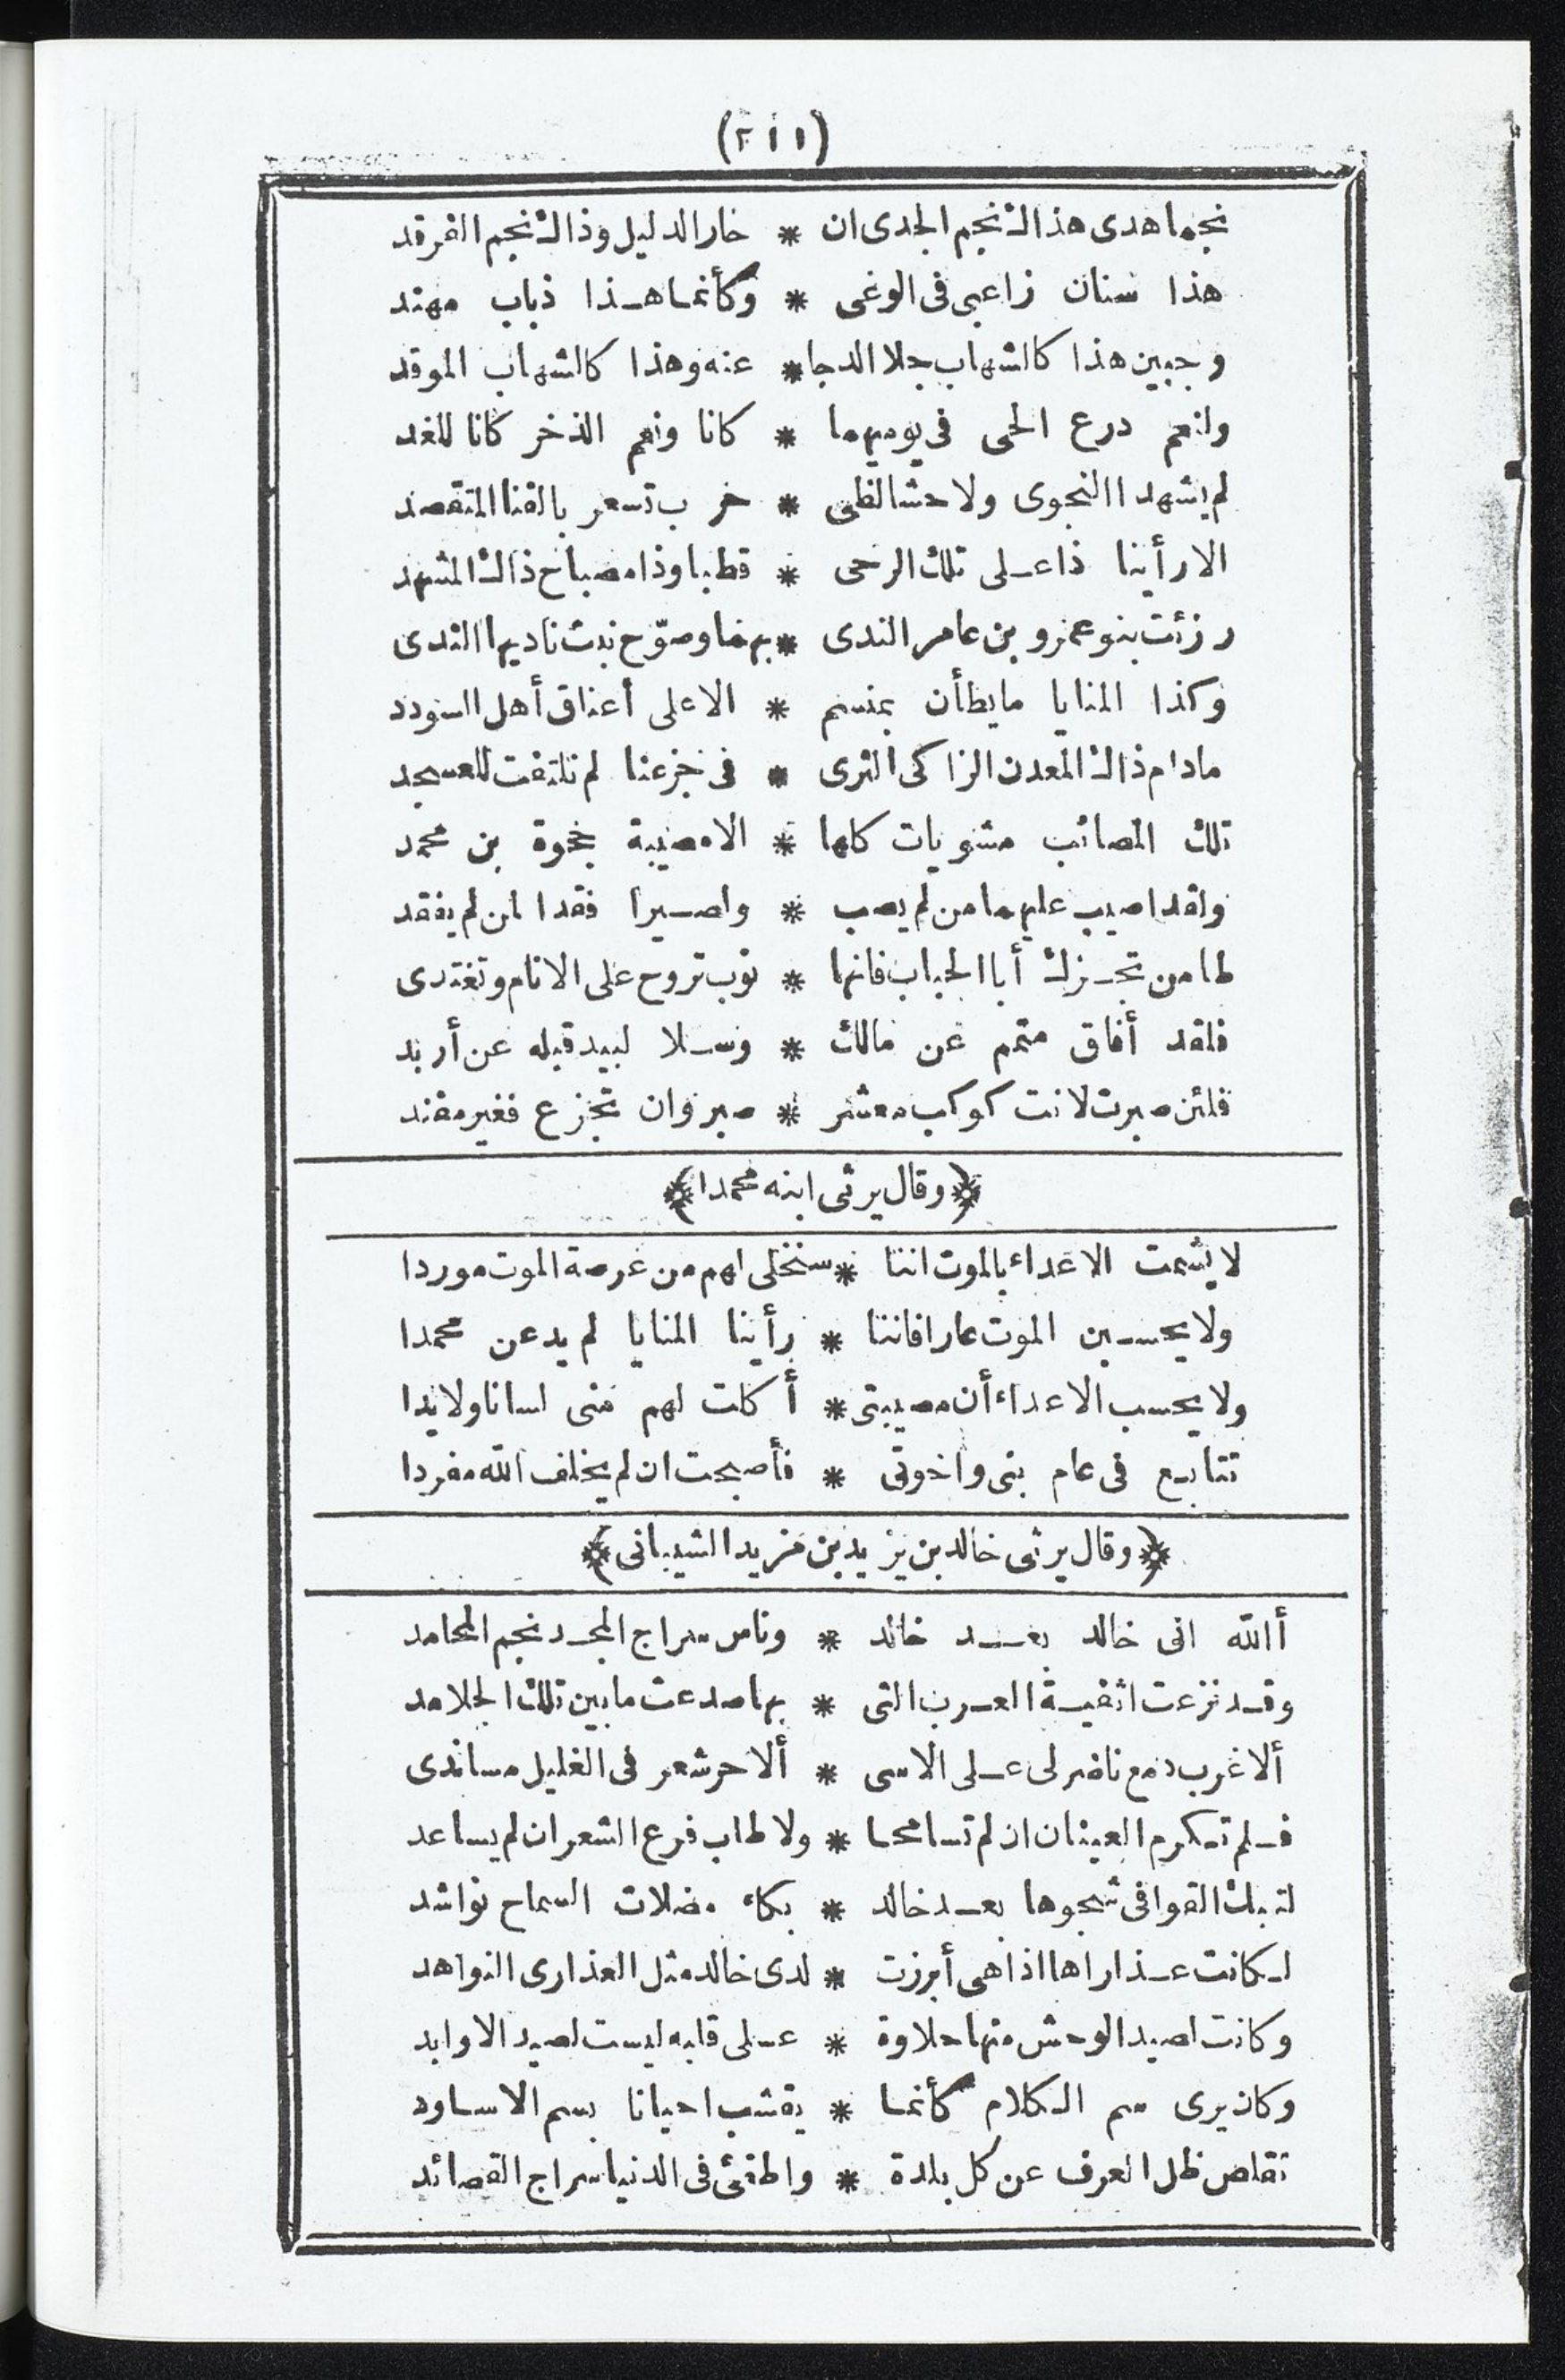 (٢١١)
نجما هدى هذاك نجم الجدى ان * خار الدليل وذاك نجم الفرقد
هذا سنان زاعبى فى الوغى * وكأنما هـذا ذباب مهند
وجبين هذا كالشهاب جلا الدجا * عنه وهذا كالشهاب الموقد
ولنعم درع الحى فى يوميهما * كانا ونعم الذخر كانا للغد
لم يشهدا النجوى ولا حشا لظى * حرب تسعر بالقنا المتقصد
الا رأينا ذا عـلى تلك الرحى * قطبا وذا مصباح ذاك المشهد
رزئت بنو عمرو بن عامر الندى * بهما وصوّح نبت ناديها الندى
وكذا المنايا ما يطأن بمنسم * الا على أعناق أهل السودد
مادام ذاك المعدن الزاكى الثرى * فى جزعنا لم نلتفت للعسجد
تلك المصائب مشويات كلها * الا مصيبة حجوة بن محمد
ولقد اصيب عليهما من لم يصب * ولصـيرا فقدا لمن لم يفقد
طامن تحـزك أبا الحباب فانها * نوب تروح على الانام وتغتدى
فلقد أفاق متمم عن مالك * وسـلا لبيد قبله عن أربد
فلئن صبرت لانت كوكب معشر * صبر وان تجزع فغير مفند
﴿وقال يرثى ابنه محمدا﴾
لا يشمت الاعداء بالموت اننا * سنخلى لهم من عرصة الموت موردا
ولا يحسـبن الموت عارا فاننا * رأينا المنايا لم يدعن محمدا
ولا يحسب الاعداء أن مصيبتى * أكلت لهم منى لسانا ولا يدا
تتابـع فى عام بنى واخوتى * فأصبحت ان لم يخلف الله مفردا
﴿وقال يرثى خالد بن يزيد بن مزيد الشيبانى﴾
أالله انى خالد بعـــد خالد * وناس سراج المجـد نجم المحامد
وقـد نزعت اثفيـة العـرب التى * بها صدعت ما بين تلك الجلامد
ألا غرب دمع ناصر لى عـلى الاسى * ألا حر شعر فى الغليل مساندى
فـلم تـكرم العينان ان لم تسامحا * ولا طاب فرع الشعر ان لم يساعد
لتبك القوافى شجوها بعـد خالد * بكاء مضلات السماح نواشد
لـكانت عـذاراها اذا هى أبرزت * لدى خالد مثل العذارى النواهد
وكانت لصيد الوحش منها حلاوة * عـلى قلبه ليست لصيد الاوابد
وكان يرى سم الـكلام كأنما * يقشب احيانا بسم الاساود
تقلص ظل العرف عن كل بلدة * واطفئ فى الدنيا سراج القصائد